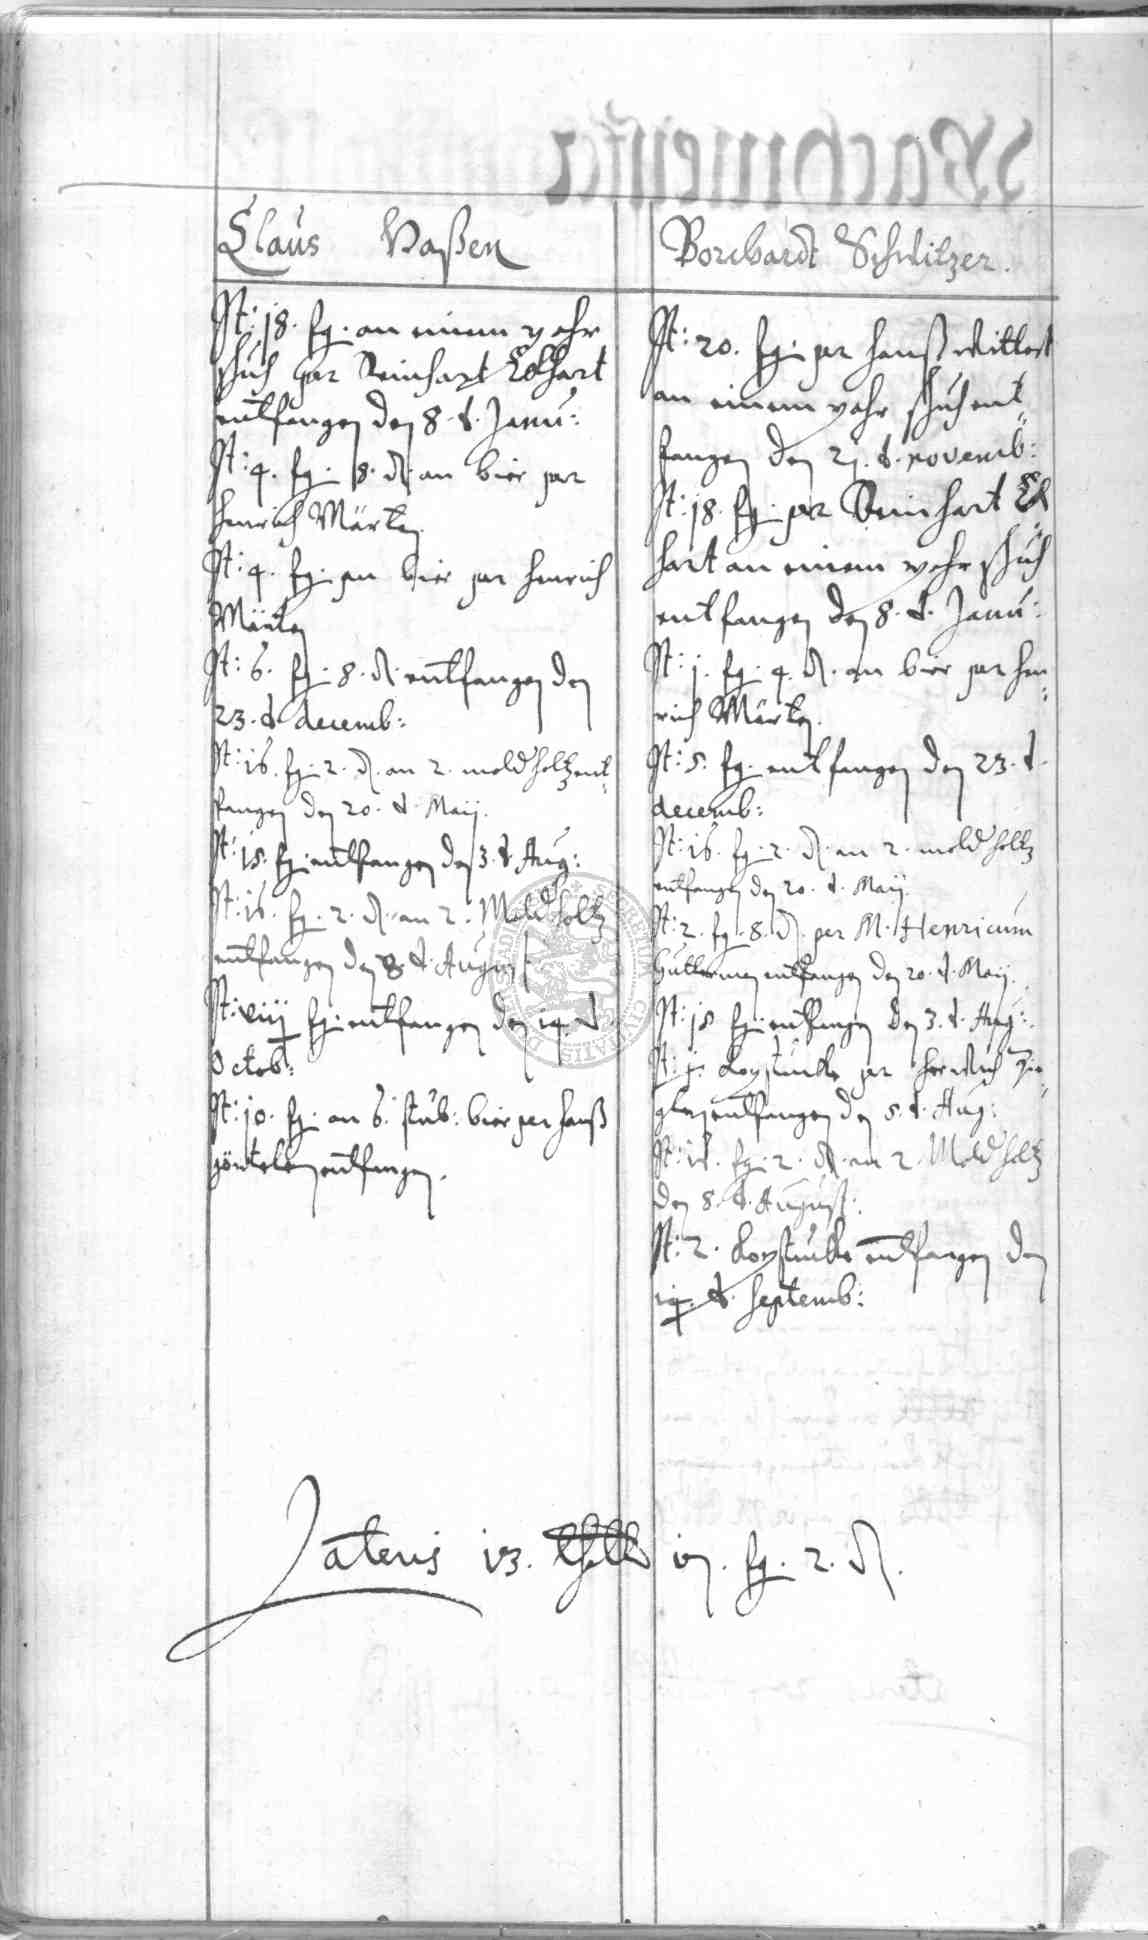 Claus Haßen
It: 18. sg. an einem pahr
schuh per Reinhart Eckhart
entfangen den 8. t. Janu:
It: 4. sg. 8. d. an bier per
Henrich Märten
It: 4. sg. an bier per Henrich
Märten
It: 6. sg. 8. d. entfangen den
23. t. decemb:
It: 16. sg. 2. d. an 2. mold holtz ent-
fangen den 20. t. Maij.
It: 15. sg. entfangen den 3. t. Aug:
It: 16. sg. 2. d. an 2. Mold holtz
entfangen den 8. t. August:
It: viij sg. entfangen den 14. t.
Octob:
It: 10. sg. an 6. stüb: bier per Hanß
entfangen.
Borchardt Schlitzer.
It: 20. sg. per Hanß
an einem pahr schuh ent-
fangen den 21. t. novemb:
It: 18. sg. per Reinhart Eck
hart an einem pahr schuh
entfangen den 8. t. Janu:
It: j. sg. 4. d. an bier per Hen-
rich Märten.
It: 5. sg. entfangen den 23. t.
decemb:
It: 16. sg. 2. d. an 2. mold holtz
entfangen den 20. t. Maij.
It: 2. sg. 8. d. per M. Henricum
entfangen den 20. t. Maij.
It: 18 sg. entfangen den 3. t. Aug:
It: j. per
entfangen den 5. t. Aug:
It: 16. sg. 2. d. an 2. Mold holtz
den 8. t. August:
It: 2. entfangen den
14. t. Septemb:
Lateris 13. thlr vj. sg. 2. d.